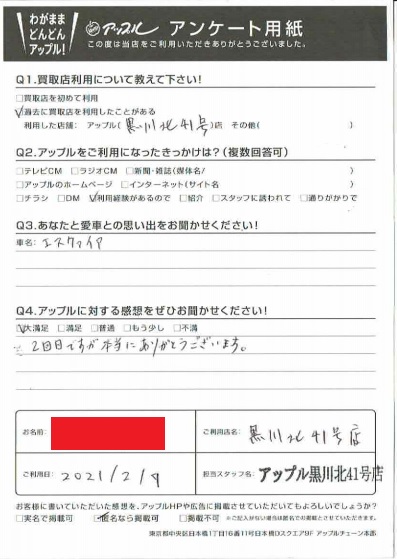 わがまま
どんどん
アップル!
アップル アンケート用紙
この度は当店をご利用いただきありがとうございました。
Q1.買取店利用について教えて下さい!
□買取店を初めて利用
☑過去に買取店を利用したことがある
利用した店舗: アップル(黒川北41号)店 その他( )
Q2.アップルをご利用になったきっかけは?(複数回答可)
□テレビCM □ラジオCM □新聞・雑誌(媒体名/ )
□アップルのホームページ □インターネット(サイト名 )
□チラシ □DM ☑利用経験があるので □紹介 □スタッフに誘われて □通りがかりで
Q3.あなたと愛車との思い出をお聞かせください!
車名: エスクァイア
Q4.アップルに対する感想をぜひお聞かせください!
☑大満足 □満足 □普通 □もう少し □不満
2回目ですが本当にありがとうございます。
お名前:
ご利用店名: 黒川北41号店
ご利用日: 2021/2/9
担当スタッフ名: アップル黒川北41号店
お客様に書いていただいた感想を、アップルHPや広告に掲載させていただいてもよろしいでしょうか?
□実名で掲載可 ☑匿名なら掲載可 □掲載不可 ※ご記入がない場合は匿名での掲載とさせていただきます。
東京都中央区日本橋1丁目16番11号日本橋Dスクエア9F アップルチェーン本部